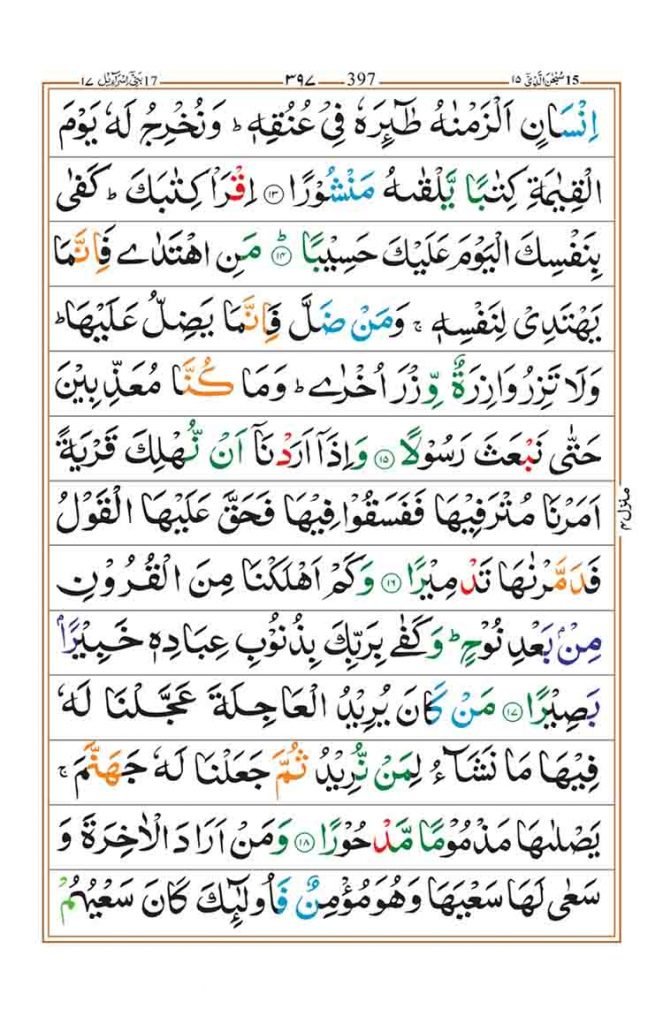 سُبْحٰنَ الَّذِيْٓ ١٥ 15 397 ٣٩٧ بَنِيْٓ اِسْرَآءِيْل ١٧ 17
اِنْسَانٍ اَلْزَمْنٰهُ طٰٓئِرَهٗ فِيْ عُنُقِهٖ ؕ وَنُخْرِجُ لَهٗ يَوْمَ
الْقِيٰمَةِ كِتٰبًا يَّلْقٰىهُ مَنْشُوْرًا ۝١٣ اِقْرَاْ كِتٰبَكَ ؕ كَفٰى
بِنَفْسِكَ الْيَوْمَ عَلَيْكَ حَسِيْبًا ؕ۝١٤ مَنِ اهْتَدٰى فَاِنَّمَا
يَهْتَدِيْ لِنَفْسِهٖ ۚ وَمَنْ ضَلَّ فَاِنَّمَا يَضِلُّ عَلَيْهَا ؕ
وَلَا تَزِرُ وَازِرَةٌ وِّزْرَ اُخْرٰى ؕ وَمَا كُنَّا مُعَذِّبِيْنَ
حَتّٰى نَبْعَثَ رَسُوْلًا ۝١٥ وَاِذَآ اَرَدْنَآ اَنْ نُّهْلِكَ قَرْيَةً
اَمَرْنَا مُتْرَفِيْهَا فَفَسَقُوْا فِيْهَا فَحَقَّ عَلَيْهَا الْقَوْلُ
فَدَمَّرْنٰهَا تَدْمِيْرًا ۝١٦ وَكَمْ اَهْلَكْنَا مِنَ الْقُرُوْنِ
مِنْۢ بَعْدِ نُوْحٍ ؕ وَكَفٰى بِرَبِّكَ بِذُنُوْبِ عِبَادِهٖ خَبِيْرًۢا
بَصِيْرًا ۝١٧ مَنْ كَانَ يُرِيْدُ الْعَاجِلَةَ عَجَّلْنَا لَهٗ
فِيْهَا مَا نَشَآءُ لِمَنْ نُّرِيْدُ ثُمَّ جَعَلْنَا لَهٗ جَهَنَّمَ ۚ
يَصْلٰىهَا مَذْمُوْمًا مَّدْحُوْرًا ۝١٨ وَمَنْ اَرَادَ الْاٰخِرَةَ وَ
سَعٰى لَهَا سَعْيَهَا وَهُوَ مُؤْمِنٌ فَاُولٰٓئِكَ كَانَ سَعْيُهُمْ
منزل ٤